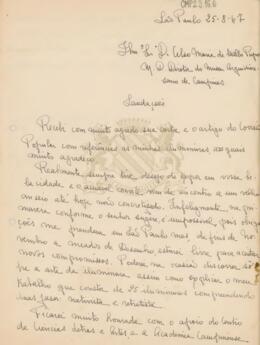 CMP2.3.15.6
São Paulo 25-8-67
Ilmo Sr. D. Celso Maria de Mello Pupo
M. D. Diretor do Museu Arquidioce-
sano de Campinas
Saudações
Recebi com muito agrado sua carta e o artigo do Correio
Popular com referências as minhas iluminuras aos quais
muito agradeço.
Realmente, sempre tive desejo de expor em vossa be-
la cidade e o convite vem de encontro a um velho
anseio até hoje não concretizado. Infelizmente, na
conforme o senhor sugere, é impossível, pois obriga-
ções me prendem em São Paulo mas, de fins de no-
vembro a meados de Dezembro, estarei livre para
novos compromissos. Poderei na ocasião discorrer so-
bre a arte da iluminura assim como explicar o meu
trabalho que consta de 25 iluminuras compreendendo
duas fases: nativista e
Ficarei muito honrada com o apoio do Centro
de Ciências Letras e Artes e a Academia Campinense